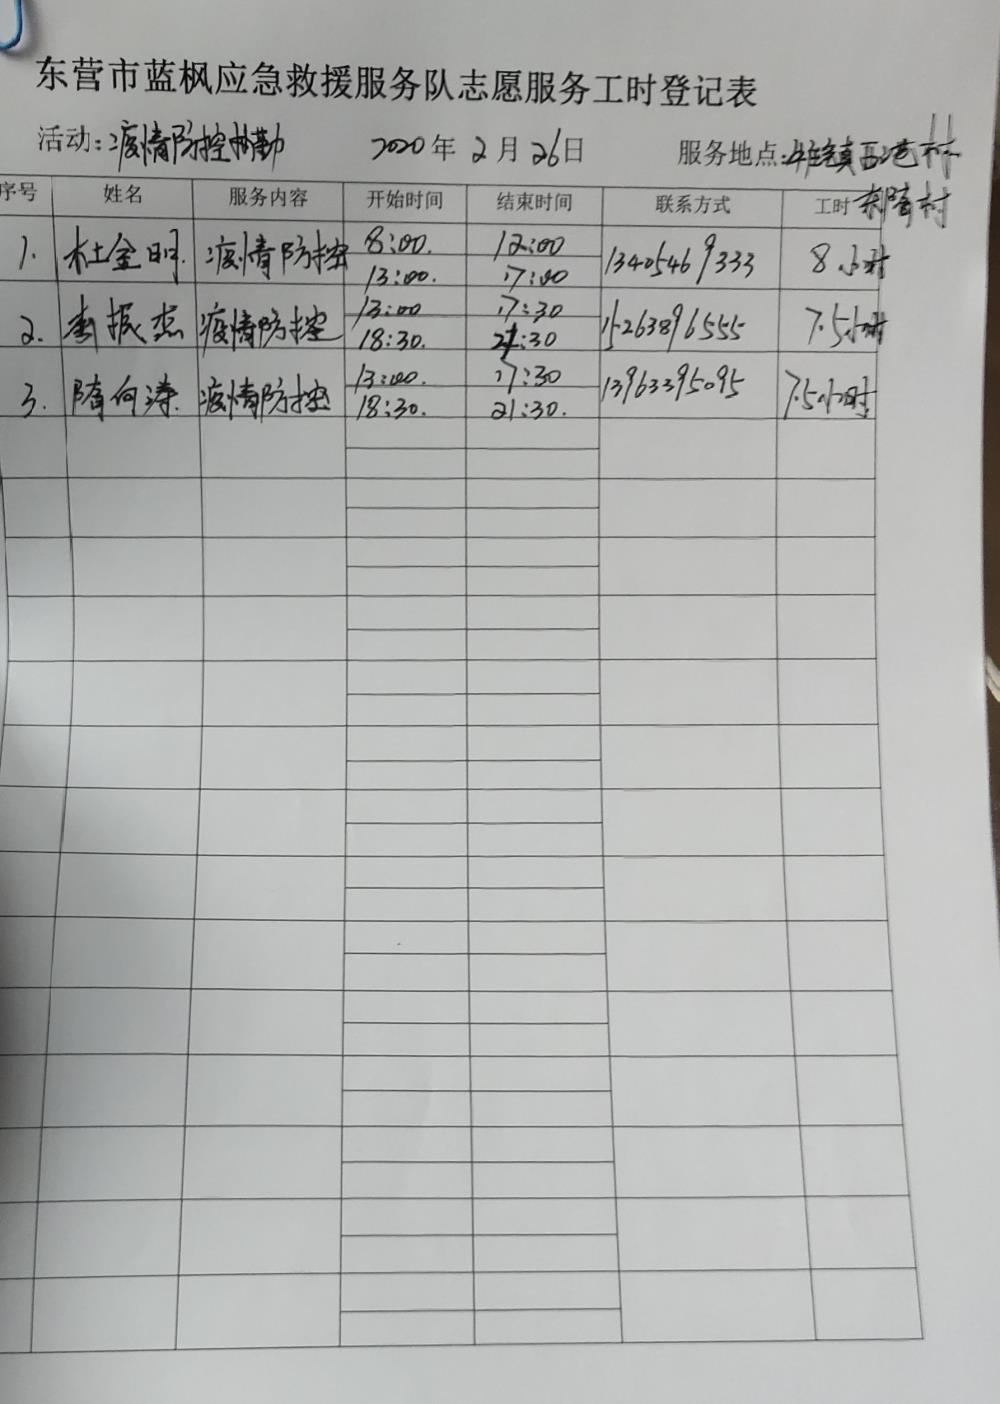 东营市蓝枫应急救援服务队志愿服务工时登记表
活动:疫情防控执勤 2020年2月26日 服务地点:镇西港村
东隋村
序号 姓名 服务内容 开始时间 结束时间 联系方式 工时
1. 杜金明 疫情防控 8:00. 12:00 13405469333 8小时
13:00. 17:00
2. 李振杰 疫情防控 13:00 17:30 15263896555 7.5小时
18:30. 21:30
3. 隋向涛 疫情防控 13:00. 17:30 13963395095 7.5小时
18:30. 21:30.